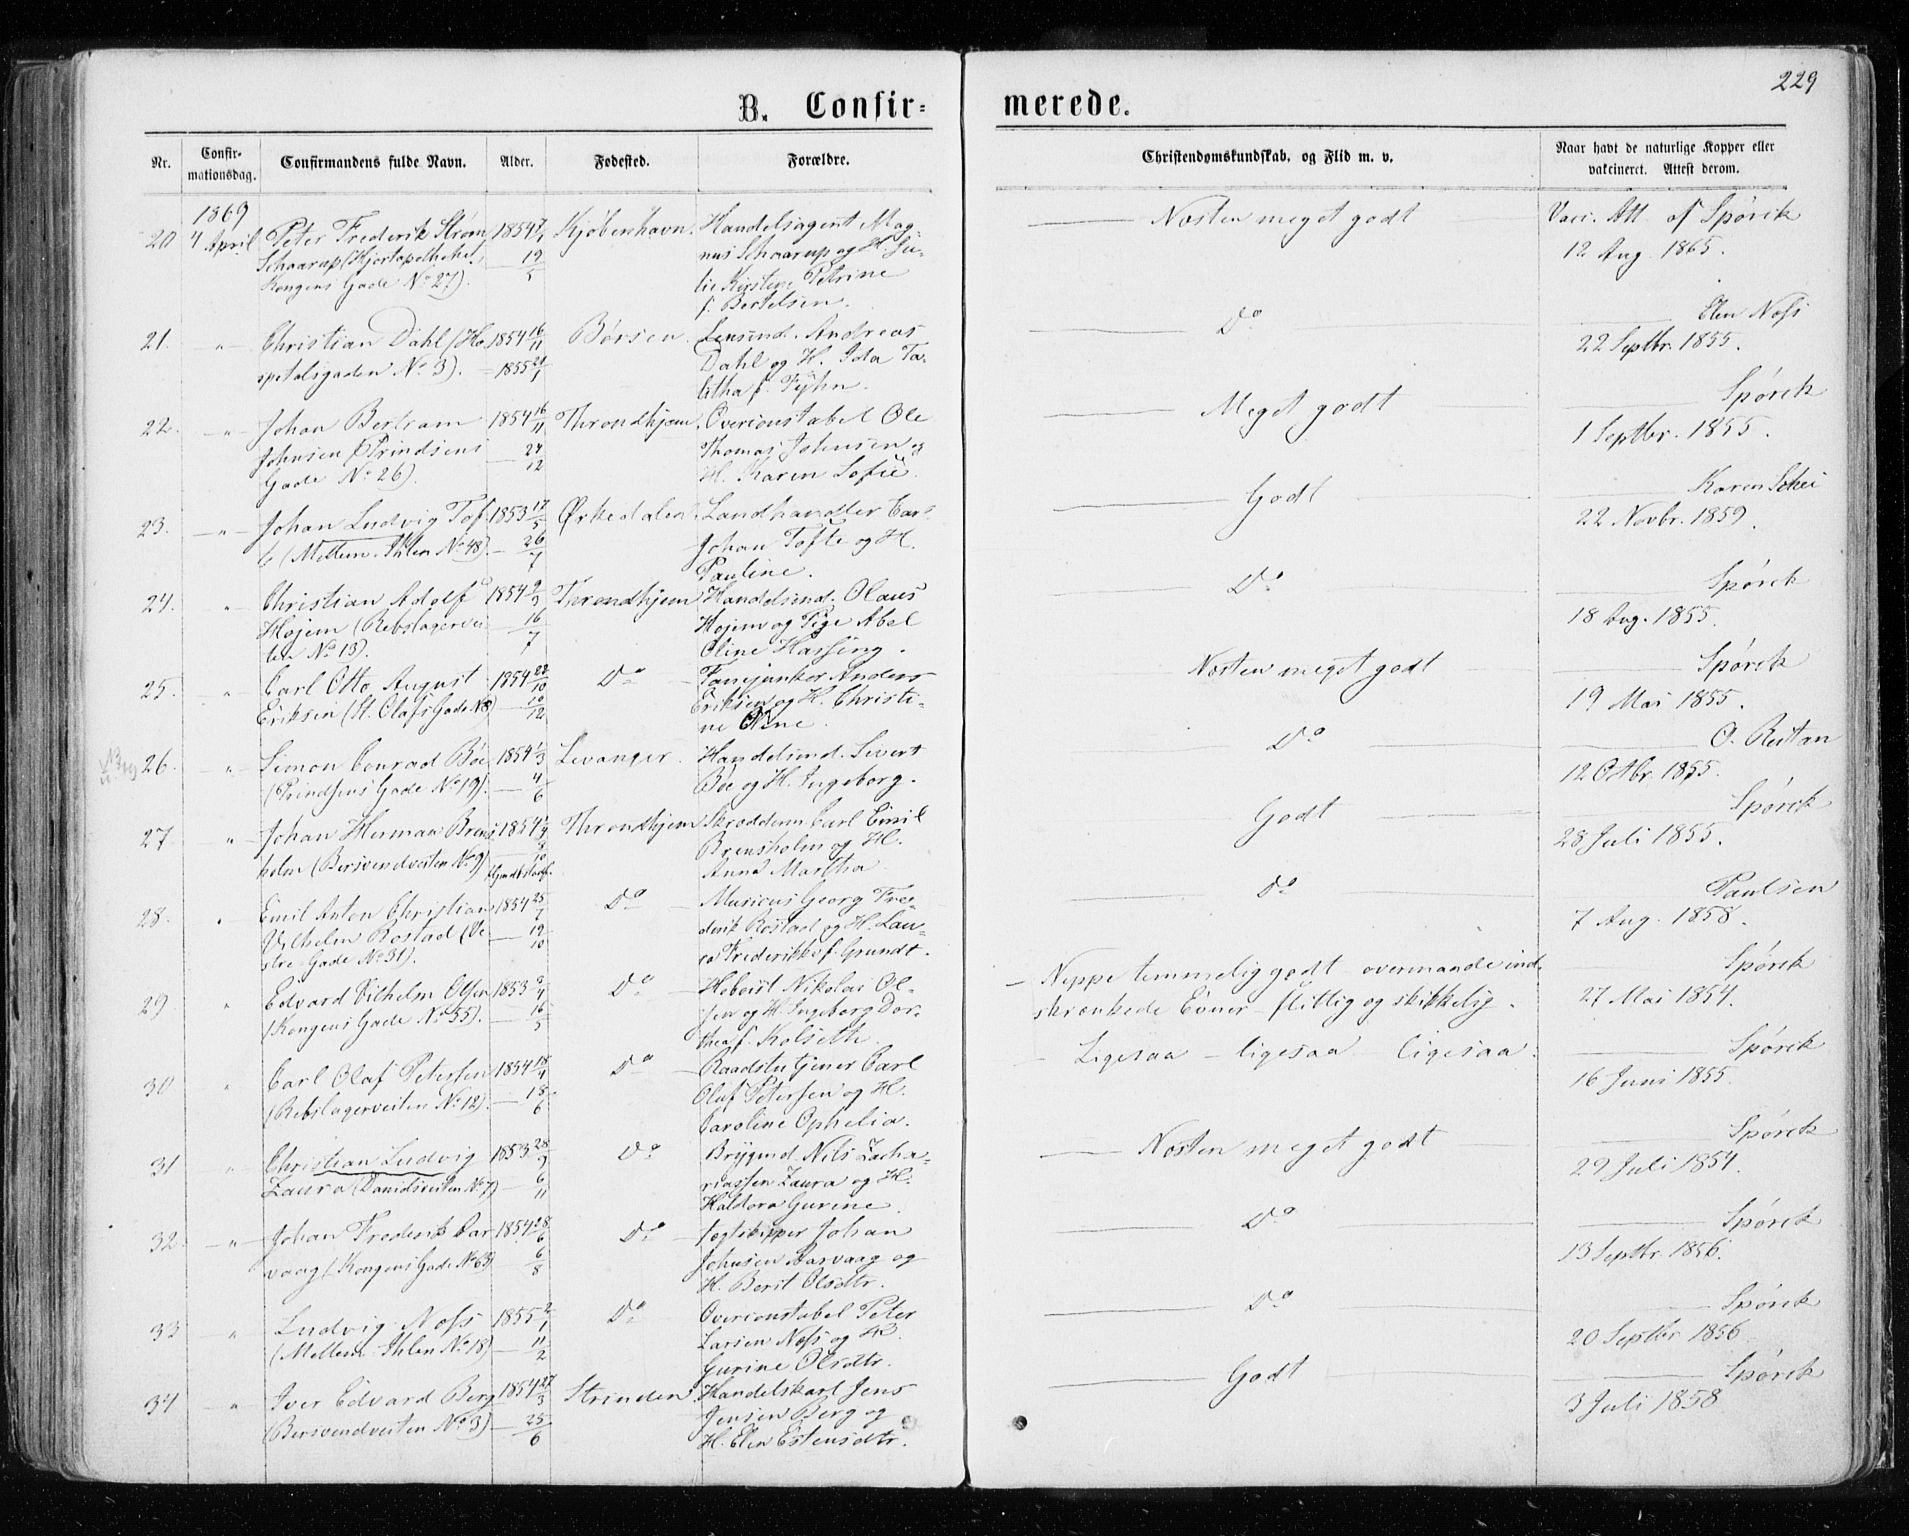 229
B. Confir=
merede.
Nr.
Confir-
mationsdag.
Confirmandens fulde Navn.
Alder.
Fødested.
Forældre.
Christendomskundskab, og Flid m. v.
Naar havt de naturlige Kopper eller
vakcineret. Attest derom.
1869
20 4 April Peter Frederik Strøm 1854 7/1 Kjøbenhavn. Handelsagent Mag- Næsten meget godt Vacc. Att. af Spørck
Schaarup (Hjortapotheket, — 19/5 nus Schaarup og H. Ju- 12 Aug. 1865.
Kongens Gade No 27). lie Kirstine Petrine
f. Bertelsen.
21. " Christian Dahl (Ho 1854 16/11 Børsen Lensmd. Andreas Do — Elen Næss
spitalsgaden No 3). — 1855 21/1 Dahl og H. Ida Ta- 22 Septbr. 1855.
litha f. Fejhn.
22. " Johan Bertram 1854 16/11 Throndhjem. Overconstabel Ole Meget godt — Spørck
Johnsen (Prindsens — 24/12 Thomas Johnsen og 1 Septbr. 1855.
Gade No 26). H. Karen Sofie.
23. " Johan Ludvig Tof 1853 17/5 Ørkedalen. Landhandler Carl Godt — Karen Schei
te (Mellem-Ihlen No 48). — 26/7 Johan Tofte og H. 22 Novbr. 1859.
Pauline.
24. " Christian Adolf 1854 9/3 Throndhjem Handelsmd. Olaus Do — Spørck
Højem (Rebslagervei — 16/7 Højem og Pige Abel 18 Aug. 1855.
ten No 13). Oline Hassing.
25. " Carl Otto August 1854 22/10 Do Fanejunker Anders Næsten meget godt — Spørck
Eriksen (St. Olafs Gade No 8) — 10/12 Eriksen og H. Christi- 19 Mai 1855.
ne Oline.
26. " Simon Conrad Bøe 1854 1/3 Levanger. Handelsmd. Sivert Do — O. Rustan
(Prindsens Gade No 19). — 4/6 Bøe og H. Ingeborg. 12 Octbr. 1855.
27. " Johan Herman Brens 1854 Throndhjem Skræddersv. Carl Emil Godt — Spørck
holm (Bersvendveiten No 9) Brensholm og H. 28 Juli 1855.
Anna Martha
28. " Emil Anton Christian 1854 25/7 Do Musicus Georg Fre- Do — Paulsen
Vilhelm Rostad (Ve — 19/10 derik Rostad og H. Lau- 7 Aug. 1858.
stre Gade No 31). ra Frederikke f. Grundt.
29 " Edvard Vilhelm Olsen 1853 9/4 Do Hoboist Nikolai Ol- Neppe temmelig godt overmaade ind- Spørck
(Kongens Gade No 55). — 16/5 sen og H. Ingeborg Dor- skrænkede Evner — flittig og skikkelig. 27 Mai 1854.
thea f. Kolseth.
30 " Carl Olaf Petersen 1854 18/4 Do Raadstutjener Carl Ligesaa — ligesaa ligesaa. — Spørck
(Rebslagerveiten No 12). — 18/6 Olaf Petersen og H. 16 Juni 1855.
Caroline Ophelia.
31 " Christian Ludvig 1853 28/9 Do Brygmd. Nils Zacha- Næsten meget godt — Spørck
Zaura (Danielsveiten No 7) — 6/11 riassen Zaura og H. 29 Juli 1854.
Haldora Gurine.
32 " Johan Frederik Aar 1854 28/6 Do Jegtskipper Johan Do — Spørck
vaag (Kongens Gade No 63) — 6/8 Johnsen Aarvaag og 13 Septbr. 1856.
H. Berit Olsdtr.
33 " Ludvig Næss 1855 2/1 Do Overconstabel Peter Do — Spørck
(Mellem-Ihlen No 18) — 11/2 Larsen Næss og H. 20 Septbr. 1856
Gurine Olsdtr.
34 " Iver Edvard Berg 1854 27/3 Strinden. Handelskarl Jens Godt — Spørck
(Bersvendveiten No 3) — 25/6 Jensen Berg og 3 Juli 1858
H. Elen Estensdtr.